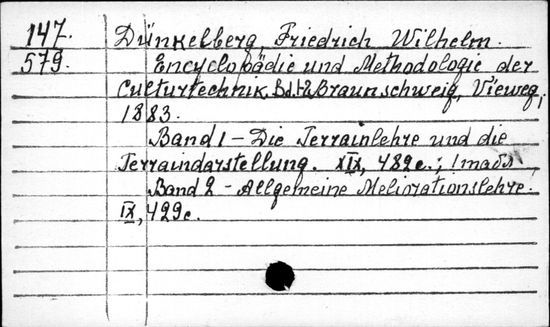 147. Dünkelberg, Friedrich Wilhelm.
579. Encyclopädie und Methodologie der
Culturtechnik. Bd.1-2. Braunschweig, Vieweg,
1883.
Band 1 - Die Terrainlehre und die
Terraindarstellung. XIX, 482c.;
Band 2 - Allgemeine Meliorationslehre.
IX, 429c.